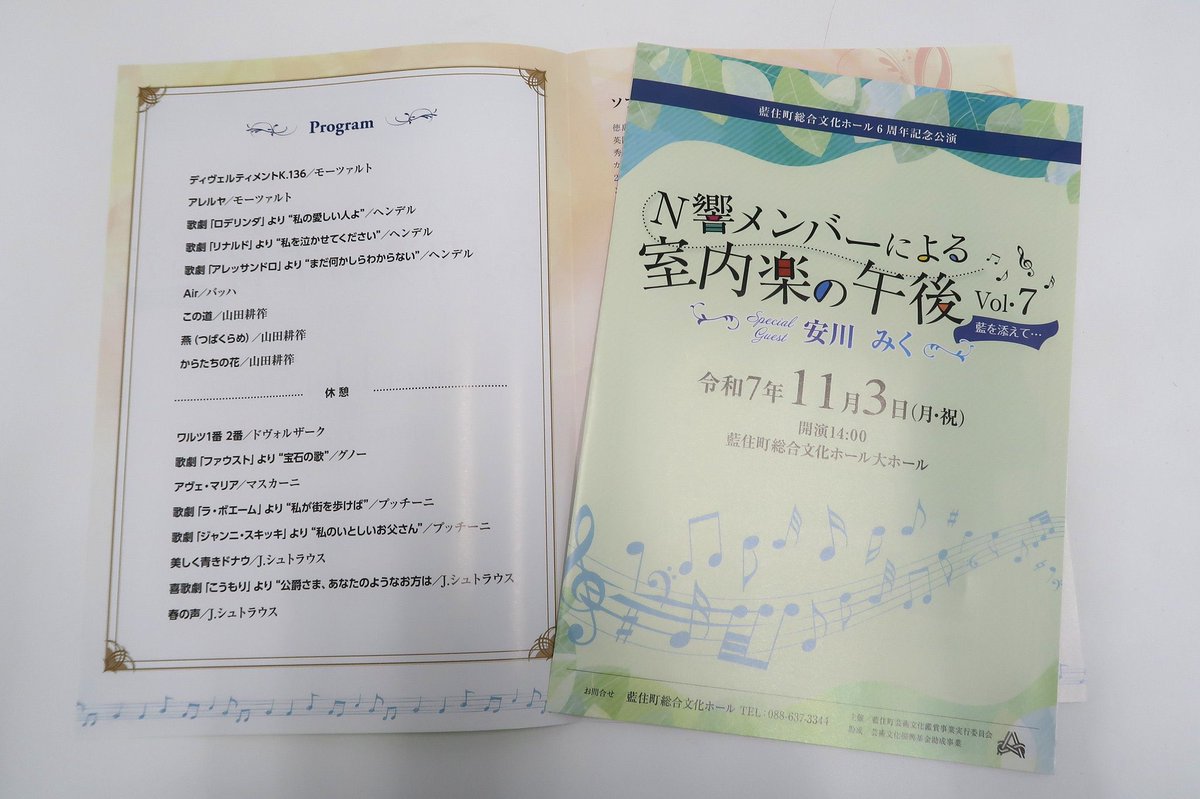 Program
ディヴェルティメントK.136／モーツァルト
アレルヤ／モーツァルト
歌劇「ロデリンダ」より“私の愛しい人よ”／ヘンデル
歌劇「リナルド」より“私を泣かせてください”／ヘンデル
歌劇「アレッサンドロ」より“まだ何かしらわからない”／ヘンデル
Air／バッハ
この道／山田耕筰
燕（つばくらめ）／山田耕筰
からたちの花／山田耕筰
休憩
ワルツ1番 2番／ドヴォルザーク
歌劇「ファウスト」より“宝石の歌”／グノー
アヴェ・マリア／マスカーニ
歌劇「ラ・ボエーム」より“私が街を歩けば”／プッチーニ
歌劇「ジャンニ・スキッキ」より“私のいとしいお父さん”／プッチーニ
美しく青きドナウ／J.シュトラウス
喜歌劇「こうもり」より“公爵さま、あなたのようなお方は／J.シュトラウス
春の声／J.シュトラウス
ソ
徳
英
秀
カ
藍住町総合文化ホール6周年記念公演
N響メンバーによる
室内楽の午後 Vol・7
藍を添えて…
Special Guest 安川 みく
令和7年11月3日(月・祝)
開演14:00
藍住町総合文化ホール大ホール
お問合せ 藍住町総合文化ホール TEL：088-637-3344
主催／藍住町芸術文化鑑賞事業実行委員会
助成 芸術文化振興基金助成事業